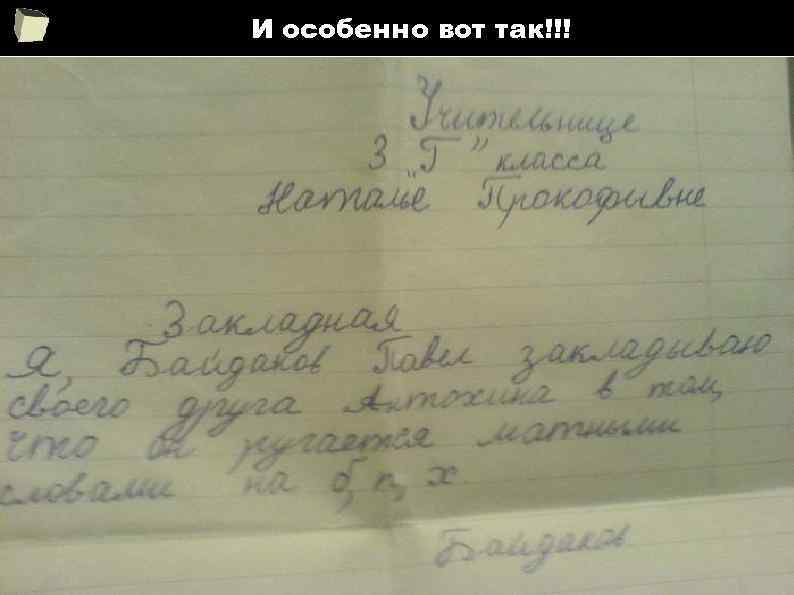 И особенно вот так!!!
Учительнице
3 "Г" класса
Наталье Прокофивне
Закладная
Я, Байдаков Павел закладываю
своего друга Антохина в том,
что он ругается матными
словами на б, п, х.
Байдаков